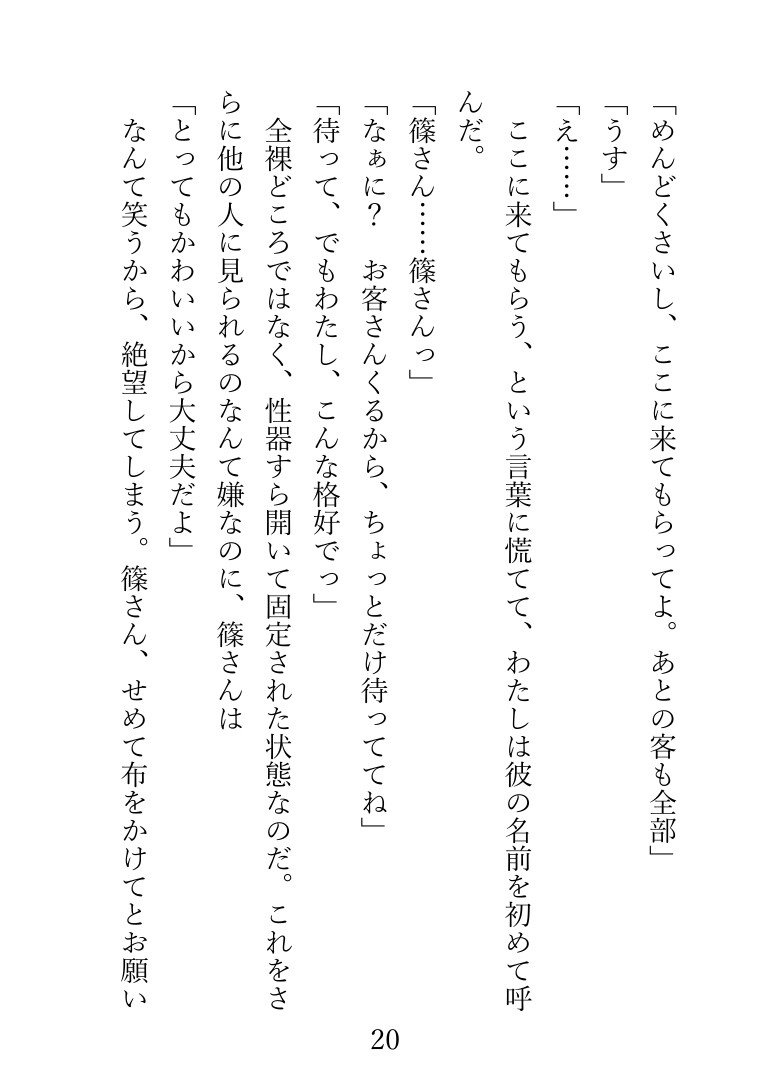 「めんどくさいし、ここに来てもらってよ。あとの客も全部」
「うす」
「え……」
　ここに来てもらう、という言葉に慌てて、わたしは彼の名前を初めて呼
んだ。
「篠さん……篠さんっ」
「なぁに？　お客さんくるから、ちょっとだけ待っててね」
「待って、でもわたし、こんな格好でっ」
　全裸どころではなく、性器すら開いて固定された状態なのだ。これをさ
らに他の人に見られるのなんて嫌なのに、篠さんは
「とってもかわいいから大丈夫だよ」
　なんて笑うから、絶望してしまう。篠さん、せめて布をかけてとお願い
20